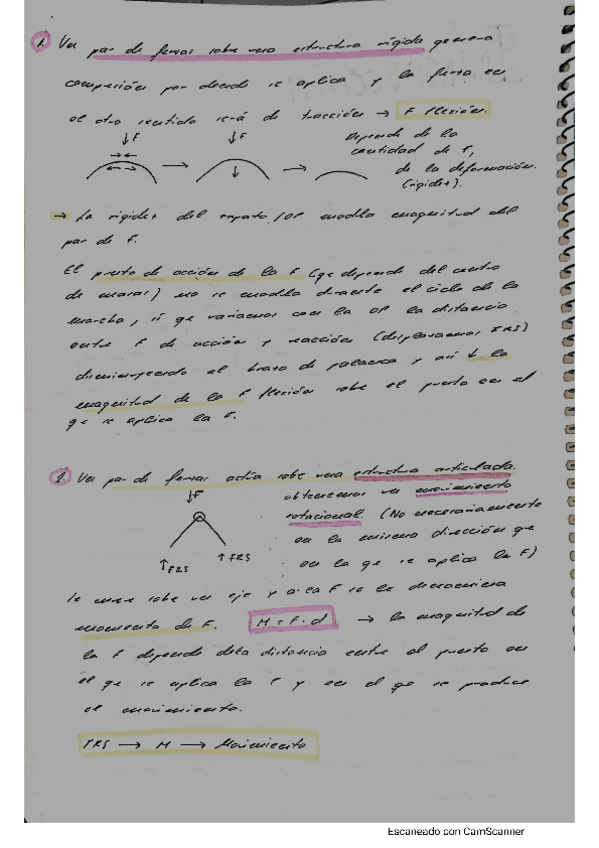 1. Un par de fuerzas sobre una estructura rígida genera
compresión por donde se aplica y la fuerza en
el otro sentido será de tracción → F flexión.
↓F ↓F Depende de la
cantidad de F,
de la deformación.
(rigidez).
→ La rigidez del zapato/OP modifica magnitud del
par de F.
El punto de acción de la F (qe depende del centro
de masas) no se modifica durante el ciclo de la
marcha, si qe variamos con la OP la distancia
entre F de acción y reacción (desplazamos FRS)
disminuyendo el brazo de palanca y así ↓ la
magnitud de la F flexión sobre el punto en el
qe se aplica la F.
2. Un par de fuerzas actúa sobre una estructura articulada.
↓F obtenemos un movimiento
rotacional. (No necesariamente
en la misma dirección que
↑FRS ↑FRS en la qe se aplica la F)
Se mueve sobre un eje y a esa F se le denomina
momento de F. M = F · d → la magnitud de
la F depende de la distancia entre el punto en
el qe se aplica la F y en el qe se produce
el movimiento.
FRS → M → Movimiento
Escaneado con CamScanner